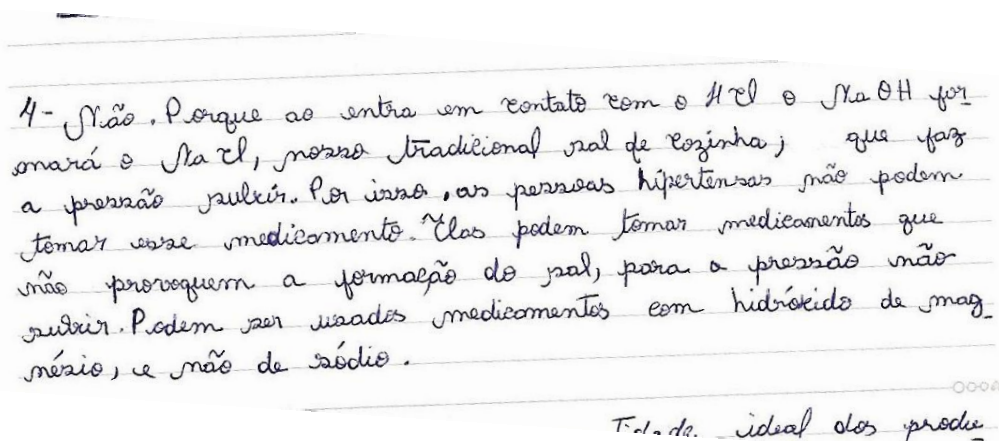 4- Não. Porque ao entra em contato com o HCl o NaOH for
mará o NaCl, nosso tradicional sal de cozinha; que faz
a pressão subir. Por isso, as pessoas hipertensas não podem
tomar esse medicamento. Elas podem tomar medicamentos que
não provoquem a formação do sal, para a pressão não
subir. Podem ser usados medicamentos com hidróxido de mag_
nésio, e não de sódio.
ideal dos produ